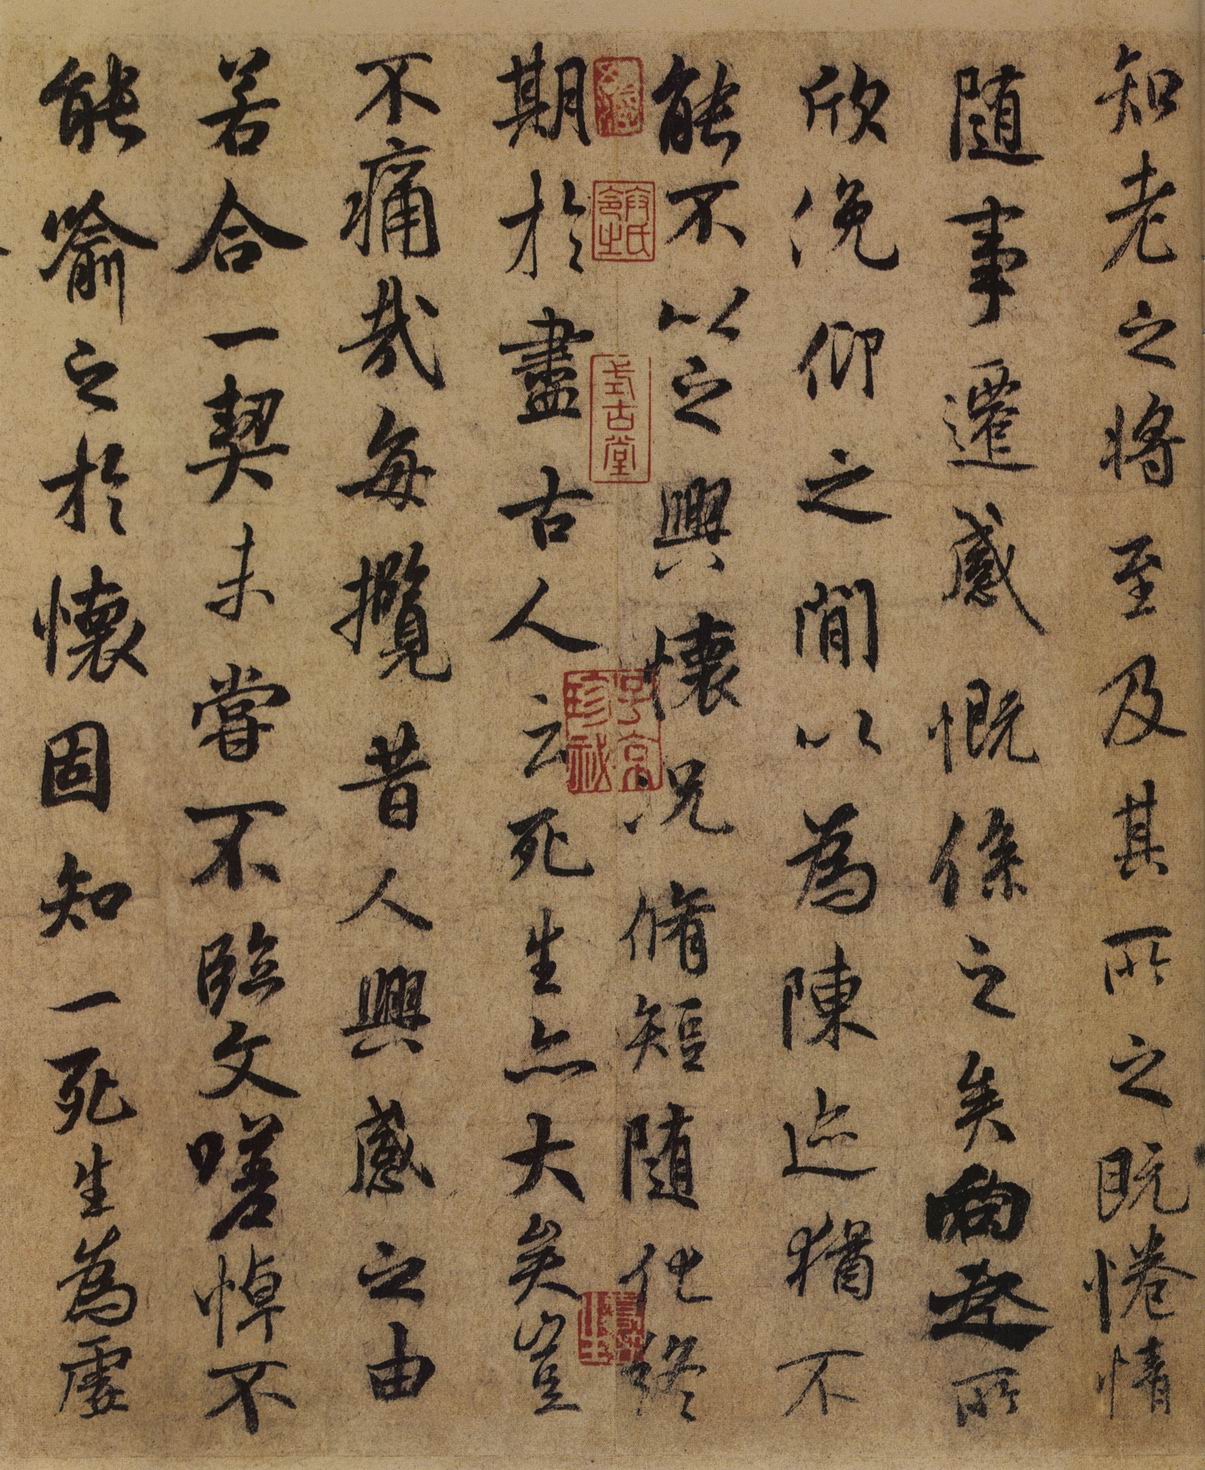 知老之將至及其所之既惓情
隨事遷感慨係之矣向之所
欣俛仰之閒以為陳迹猶不
能不以之興懷况脩短隨化終
期於盡古人云死生亦大矣豈
不痛哉每攬昔人興感之由
若合一契未嘗不臨文嗟悼不
能喻之於懷固知一死生為虛
式古堂
子京珍秘